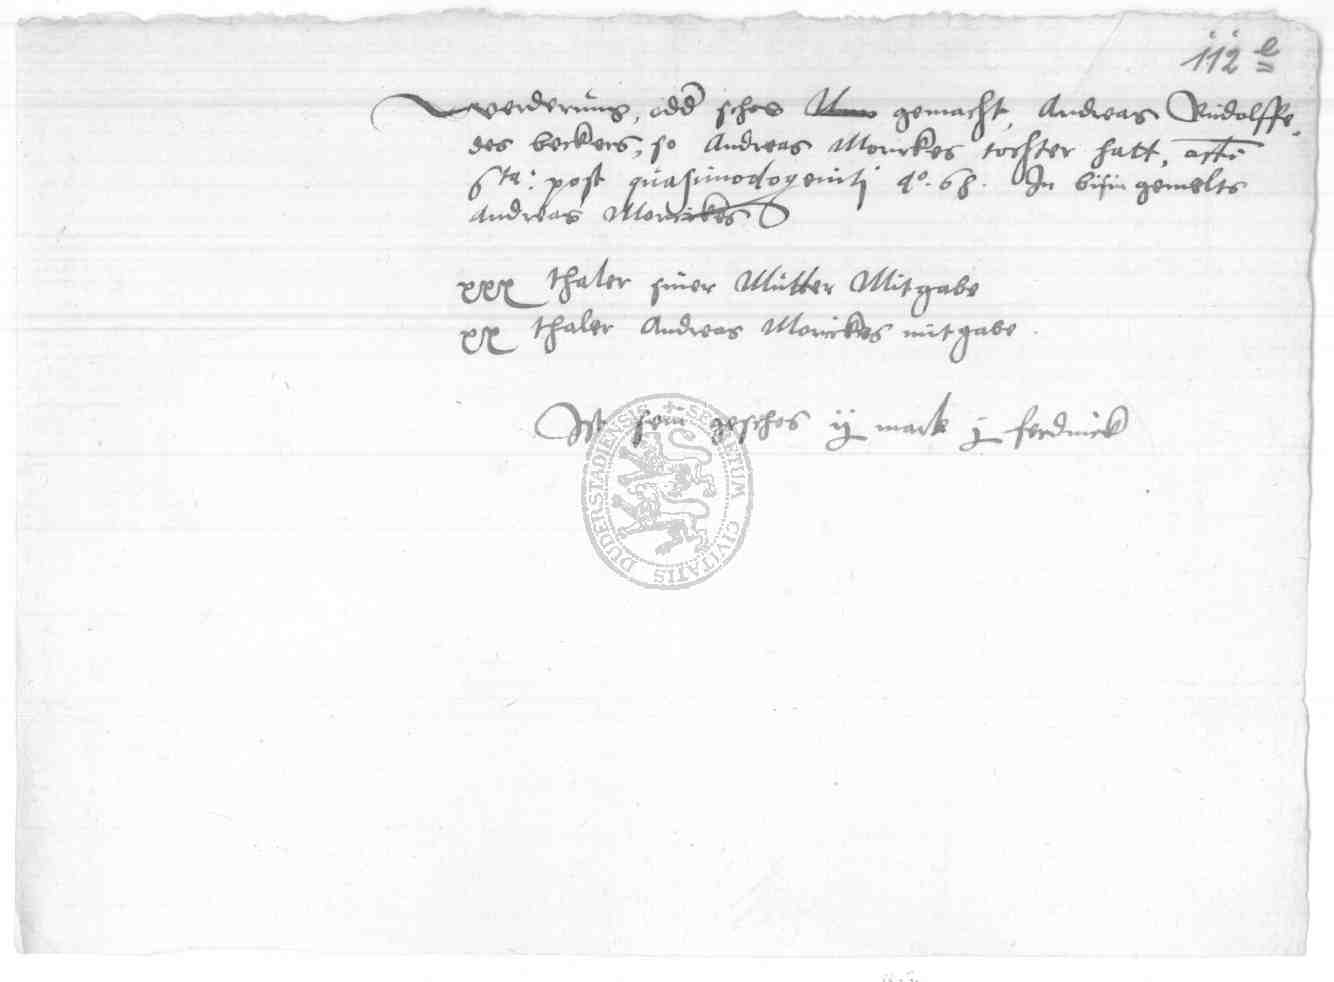 112 e
werderung, odder schos gemacht, Andreas Rudolffe,
des beckers, so Andreas Monickes tochter hatt, actum
6ta: post quasimodogeniti Ao. 68. In bisin gemelts
Andreas Monickes
xxx thaler siner Mutter Mitgabe
xx thaler Andreas Monickes mitgabe.
Ist sein geschos ij mark j ferdinck
SECRETUM CIVITATIS DUDERSTADENSIS